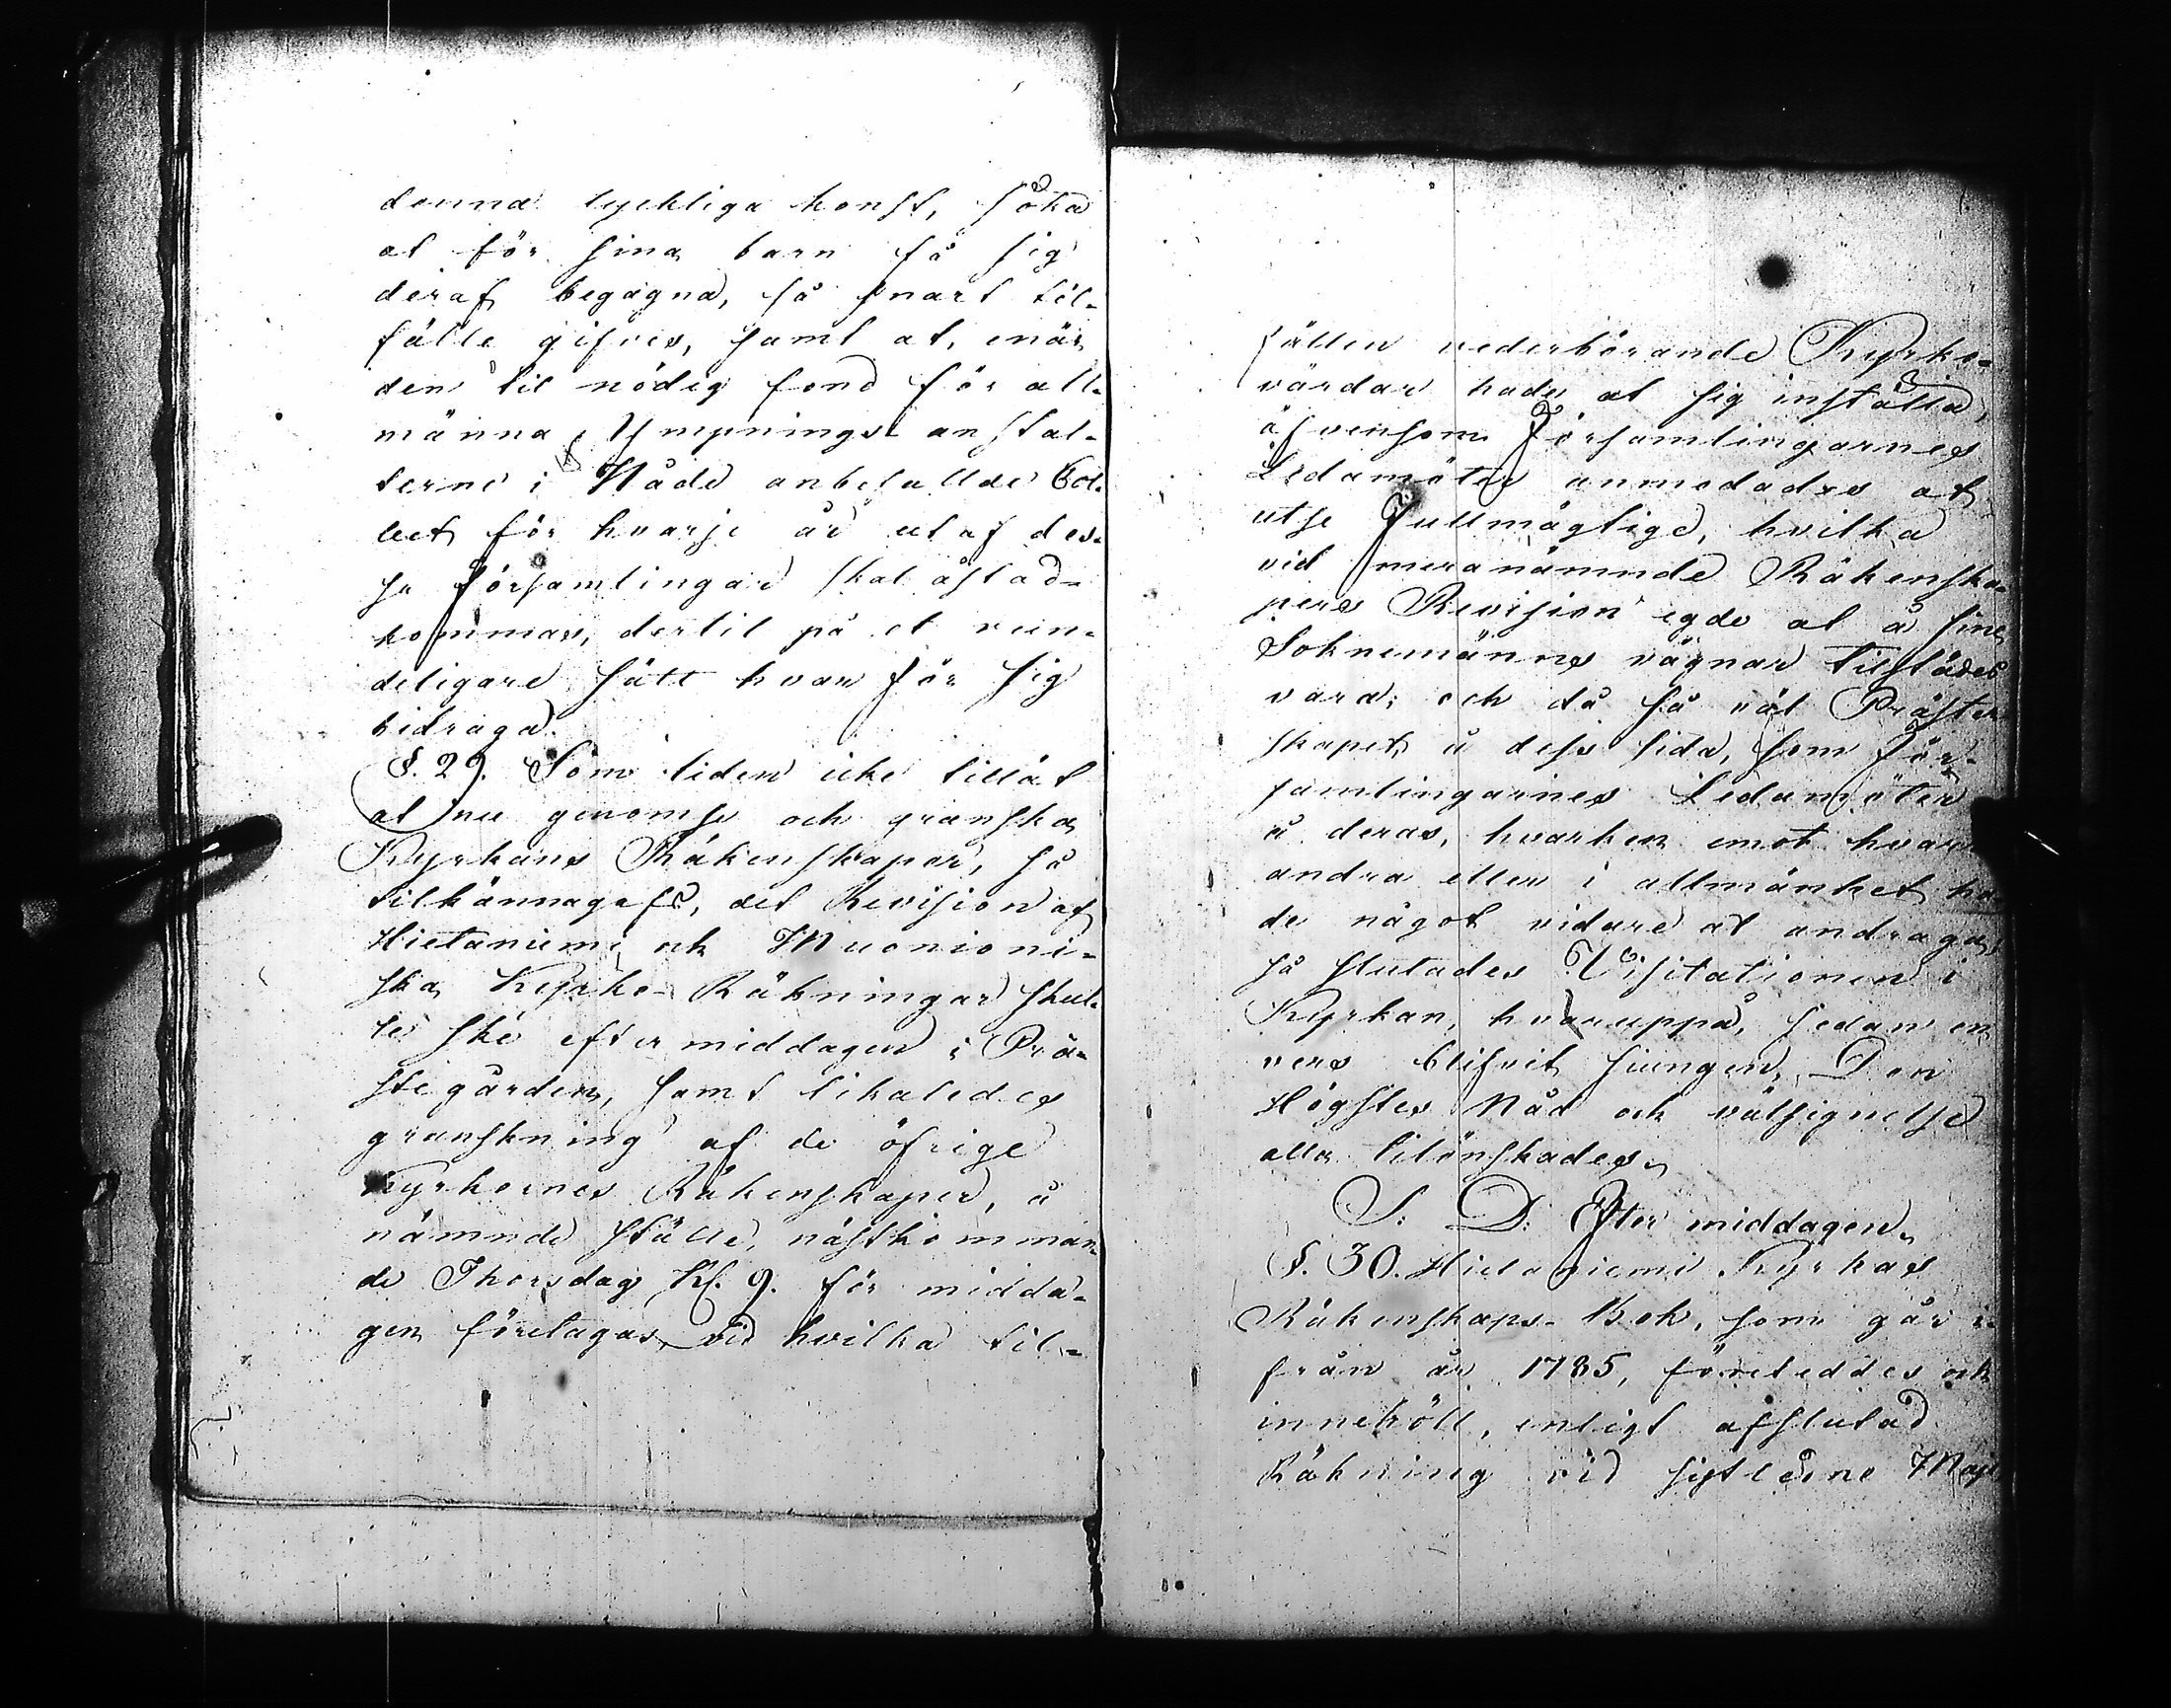 denna lyckliga konst, söka
at för sina barn få sig
deraf begagna, så snart til-
fälle gifves, samt at, enär
den til nödig fond för all-
männa Ympnings-anstal-
terne i Nåde anbefallde Col-
lect för hvarje år utaf des-
se församlingar skal åstad-
kommas, dertil på et reun-
deligare sätt hvar för sig
bidraga.
§. 29. Som tiden icke tillät
at nu genomse och granska
Kyrkans Räkenskaper, så
tilkännagafs, det Revision af
Hietaniemi och Muonioni-
ska Kyrko-Räkningar skul-
le ske eftermiddagen i Prä-
stegården, samt likaledes
granskning af de öfrige
Kyrkornes Räkenskaper, å
nämnde ställe, nästkomman-
de Thorsdag Kl. 9. för midda-
gen företagas, vid hvilka til-
fällen vederbörande Kyrko-
värdar hade at sig inställa,
äfvensom Församlingarnes
Ledamöter anmodades at
utse Fullmägtige, hvilka
vid meranämnde Räkenska-
pers Revision egde at å sine
Soknemänns vägnar tilstädes
vara; och då så väl Präster-
skapet, å dess sida, som För-
samlingarnes Ledamöter
å deras, hvarken emot hvar-
andra eller i allmänhet ha-
de något vidare at andraga,
så slutades Visitationen i
Kyrkan, hvaruppå, sedan en
vers blifvit siungen, Den
Högstes Nåd och välsignelse
alla tilönskades.
S. D. Efter middagen.
§. 30. Hietaniemi Kyrkas
Räkenskaps-Bok, som går i-
från år 1785, företeddes och
innehöll, enligt afslutad
Räkning vid sistledne Maji